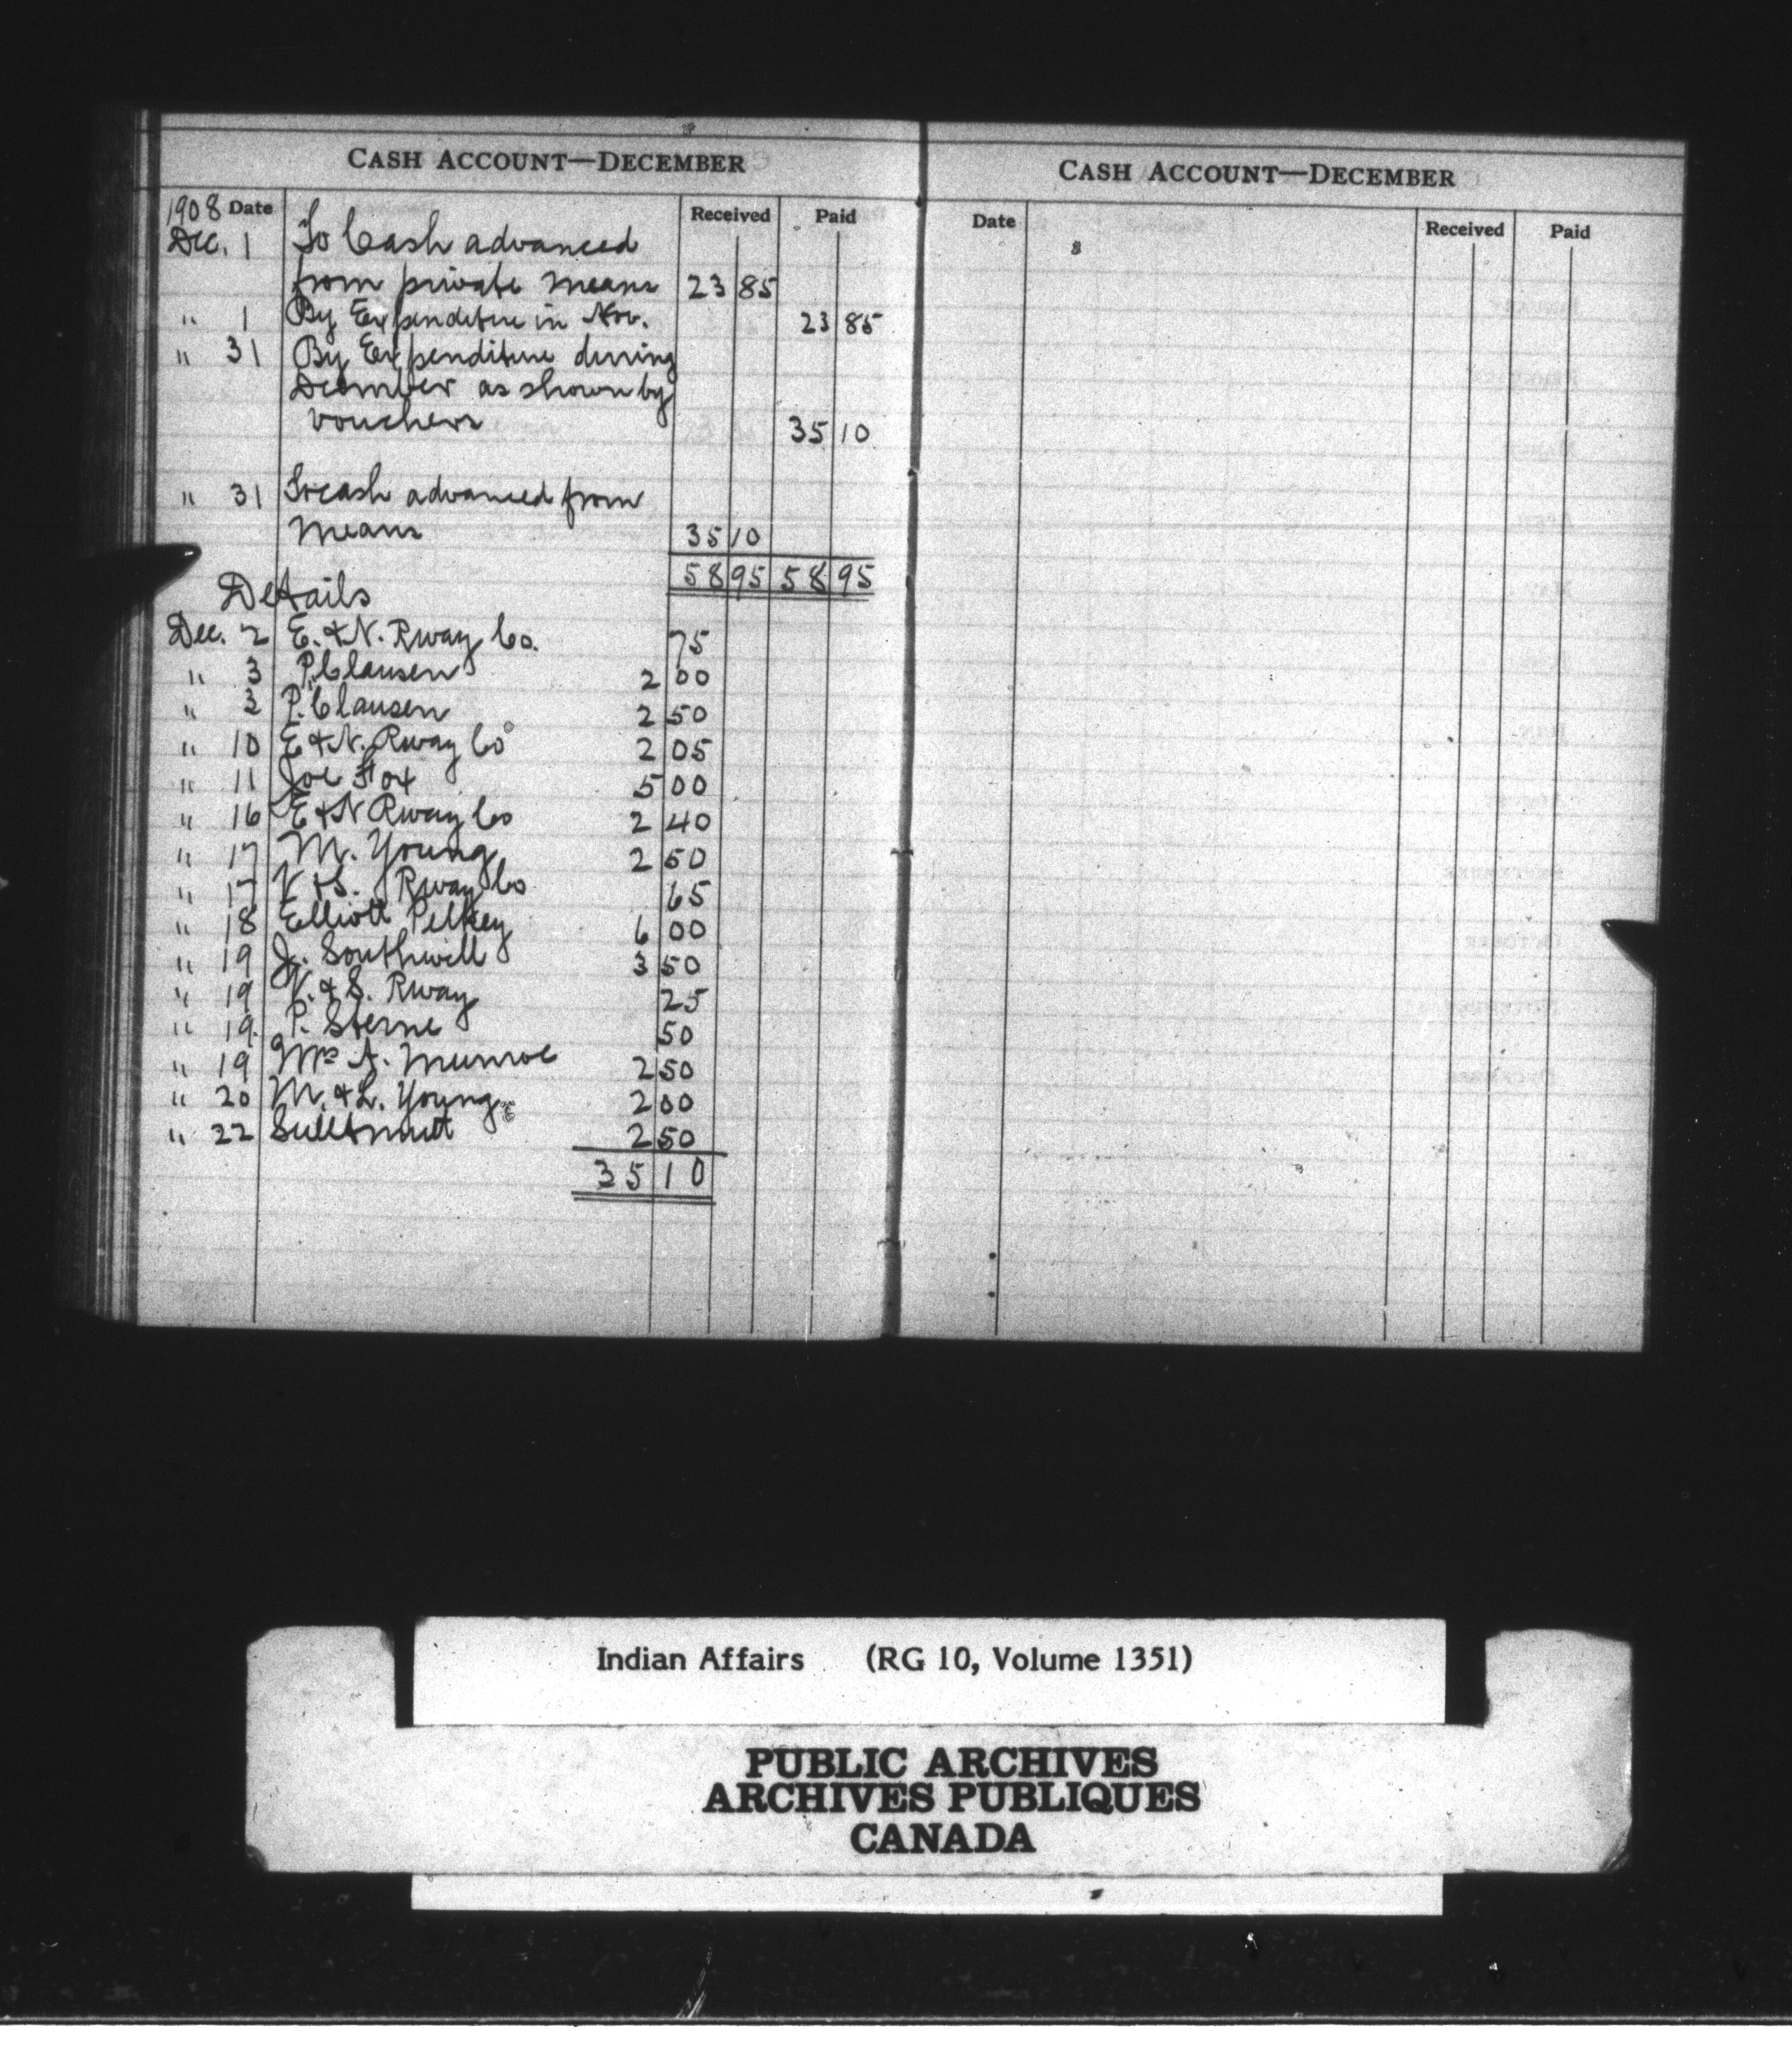 CASH ACCOUNT—DECEMBER
1908 Date Received Paid
Dec. 1 To Cash advanced
from private means 23 85
" 1 By Expenditure in Nov. 23 85
" 31 By Expenditure during
December as shown by
vouchers 35 10
" 31 To cash advanced from
means 35 10
58 95 58 95
Details
Dec. 2 E. & N. Rway Co. 75
" 3 P. Clausen 2 00
" 3 P. Clausen 2 50
" 10 E & N. Rway Co 2 05
" 11 Joe Fox 5 00
" 16 E & N Rway Co 2 40
" 17 M. Young 2 50
" 17 V & S. Rway Co 65
" 18 Elliott Pelkey 6 00
" 19 J. Southwell 3 50
" 19 V. & S. Rway 25
" 19. P. Sterne 50
" 19 Mrs A. Munroe 2 50
" 20 M. & L. Young 2 00
" 22 2 50
35 10
CASH ACCOUNT—DECEMBER
Date Received Paid
Indian Affairs (RG 10, Volume 1351)
PUBLIC ARCHIVES
ARCHIVES PUBLIQUES
CANADA